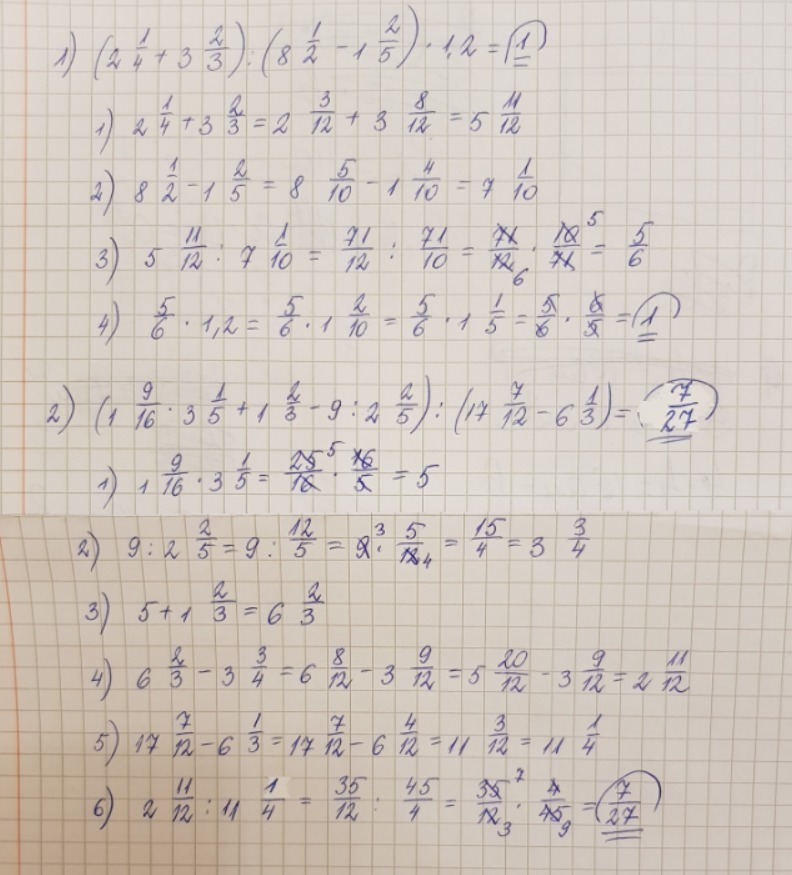 1) (2 1/4 + 3 2/3) : (8 1/2 - 1 2/5) · 1,2 = 1
1) 2 1/4 + 3 2/3 = 2 3/12 + 3 8/12 = 5 11/12
2) 8 1/2 - 1 2/5 = 8 5/10 - 1 4/10 = 7 1/10
3) 5 11/12 : 7 1/10 = 71/12 : 71/10 = 71/12 6 · 10 5/71 = 5/6
4) 5/6 · 1,2 = 5/6 · 1 2/10 = 5/6 · 1 1/5 = 5/6 · 6/5 = 1
2) (1 9/16 · 3 1/5 + 1 2/3 - 9 : 2 2/5) : (17 7/12 - 6 1/3) = 7/27
1) 1 9/16 · 3 1/5 = 25 5/16 · 16/5 = 5
2) 9 : 2 2/5 = 9 : 12/5 = 9 3 · 5/12 4 = 15/4 = 3 3/4
3) 5 + 1 2/3 = 6 2/3
4) 6 2/3 - 3 3/4 = 6 8/12 - 3 9/12 = 5 20/12 - 3 9/12 = 2 11/12
5) 17 7/12 - 6 1/3 = 17 7/12 - 6 4/12 = 11 3/12 = 11 1/4
6) 2 11/12 : 11 1/4 = 35/12 : 45/4 = 35 7/12 3 · 4/45 9 = 7/27